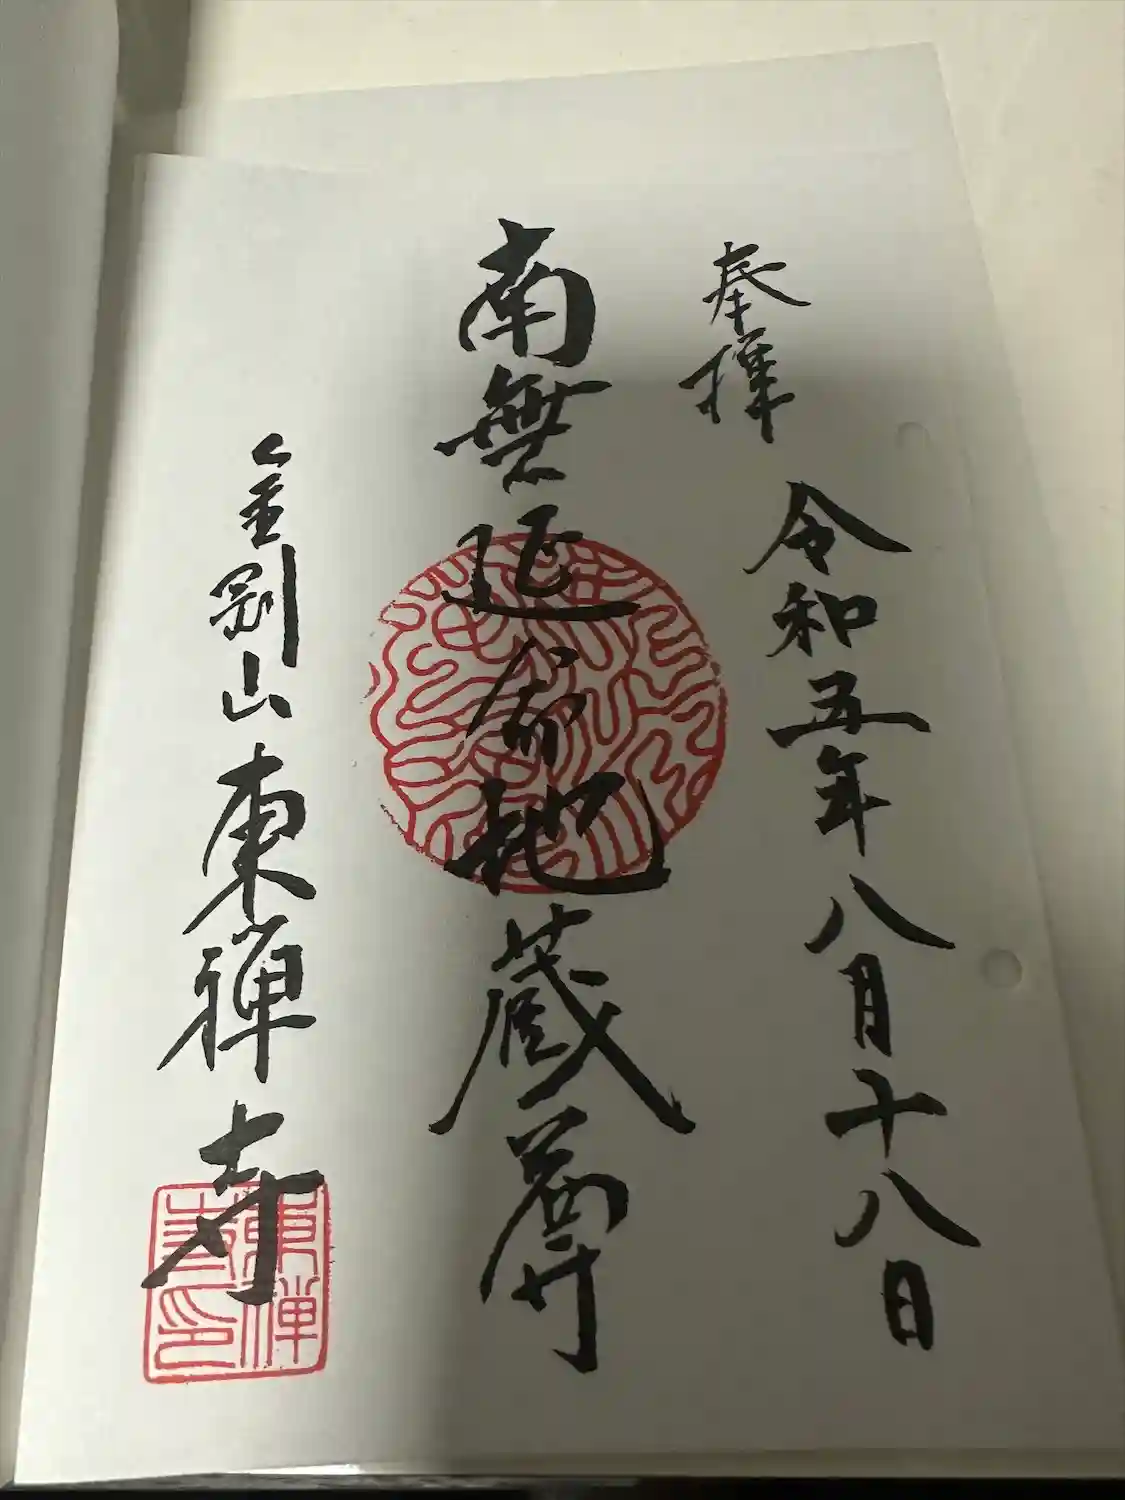 奉拝
令和五年八月十八日
南無延命地蔵尊
金剛山東禅寺
東禅寺印